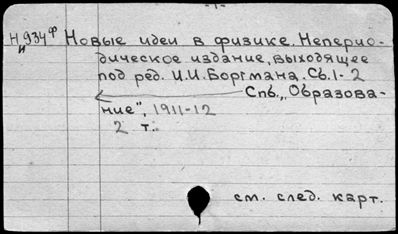 - 1 -
Н 934 ф Новые идеи в физике. Неперио-
И
дическое издание, выходящее
под ред. И.И. Боргмана. Сб. 1-2
Спб., „Образова-
ние", 1911-12
2 т.
см. след. карт.